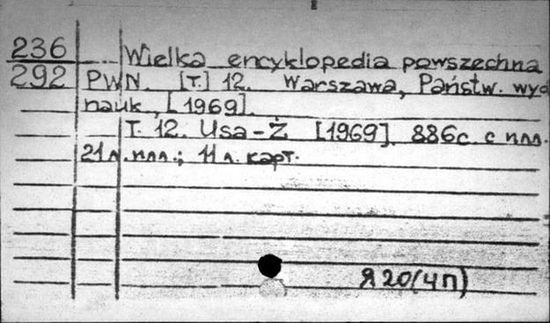 236
292
Wielka encyklopedia powszechna
PWN. [T.] 12. Warszawa, Państw. wyd
nauk., [1969].
T. 12. Usa-Ż [1969]. 886с. с илл.
21 л. илл.; 11 л. карт.
Я 20(4П)